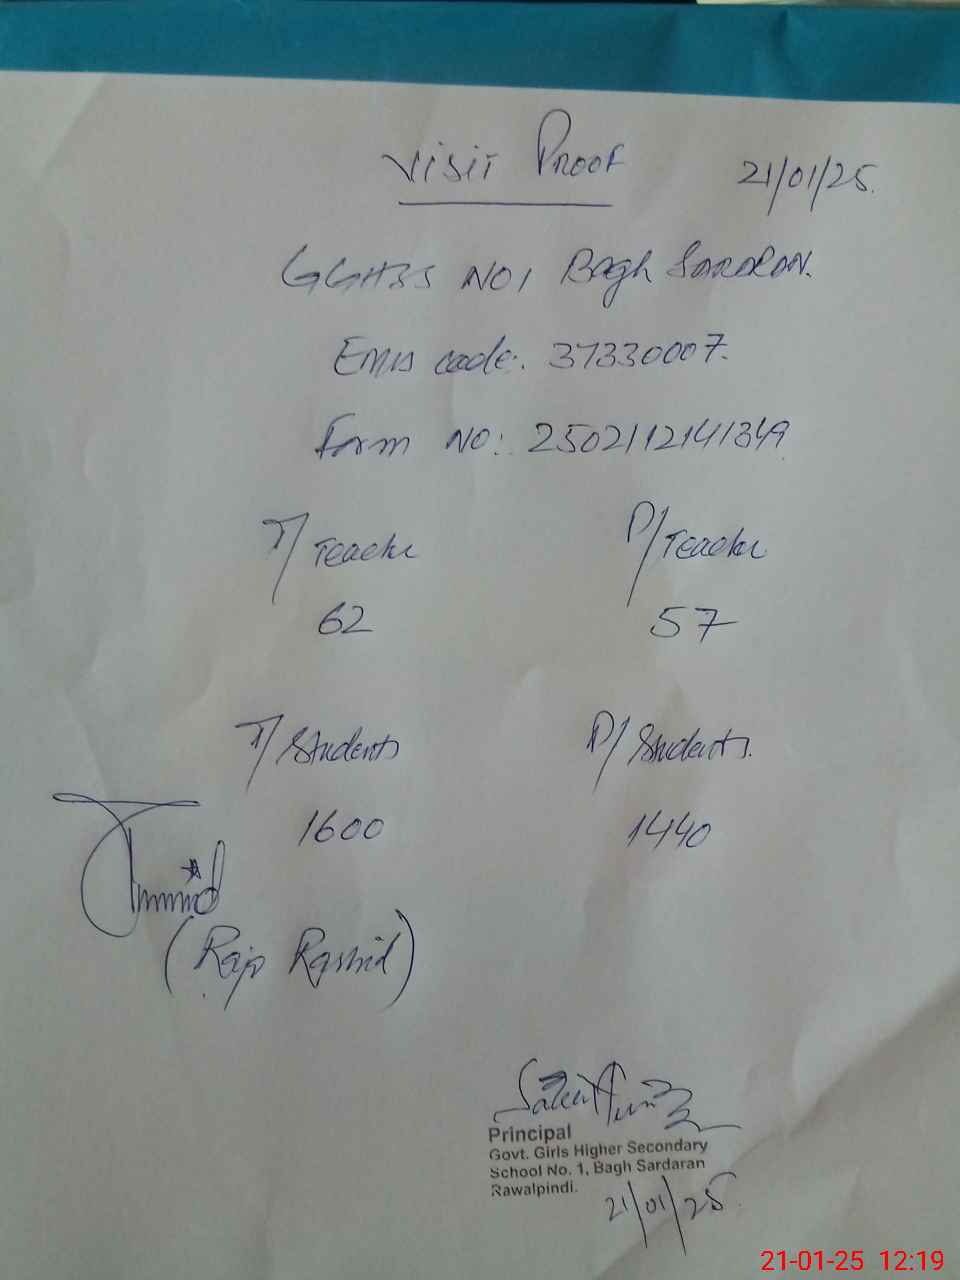 Visit Proof
21/01/25.
GGHSS NO1 Bagh Sardran.
Emis code: 37330007.
Form NO: 2502112141349
T/Teacher P/Teacher
62 57
T/Students P/Students.
1600 1440
(Raja Rashid)
Principal
Govt. Girls Higher Secondary
School No. 1, Bagh Sardaran
Rawalpindi.
21/01/25
21-01-25 12:19